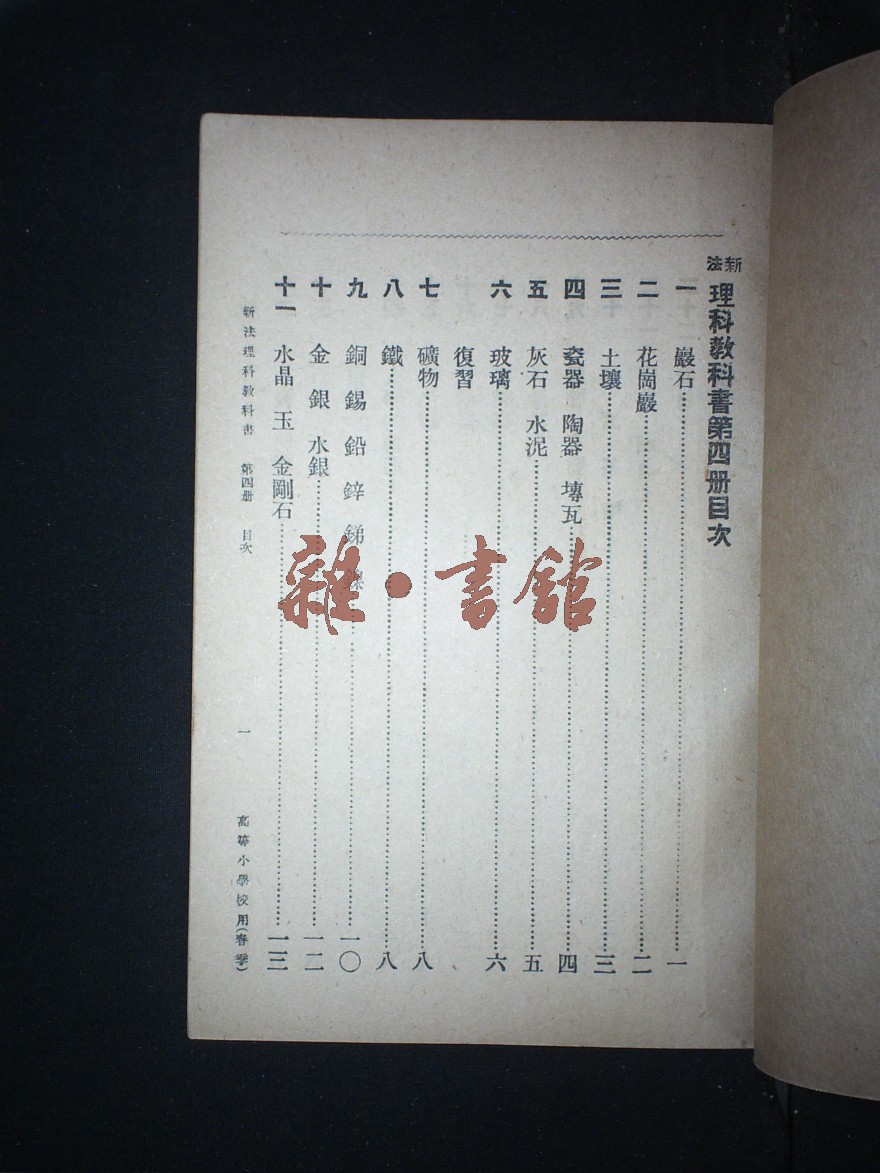 新法理科教科書第四册目次
一 巖石……一
二 花崗巖……二
三 土壤……三
四 瓷器 陶器 塼瓦……四
五 灰石 水泥……五
六 玻璃……六
復習
七 礦物……八
八 鐵……八
九 銅 錫 鉛 鋅 銻 鎳……一〇
十 金 銀 水銀……一二
十一 水晶 玉 金剛石……一三
新法理科教科書 第四册 目次 一 高等小學校用(春季)
雜·書館